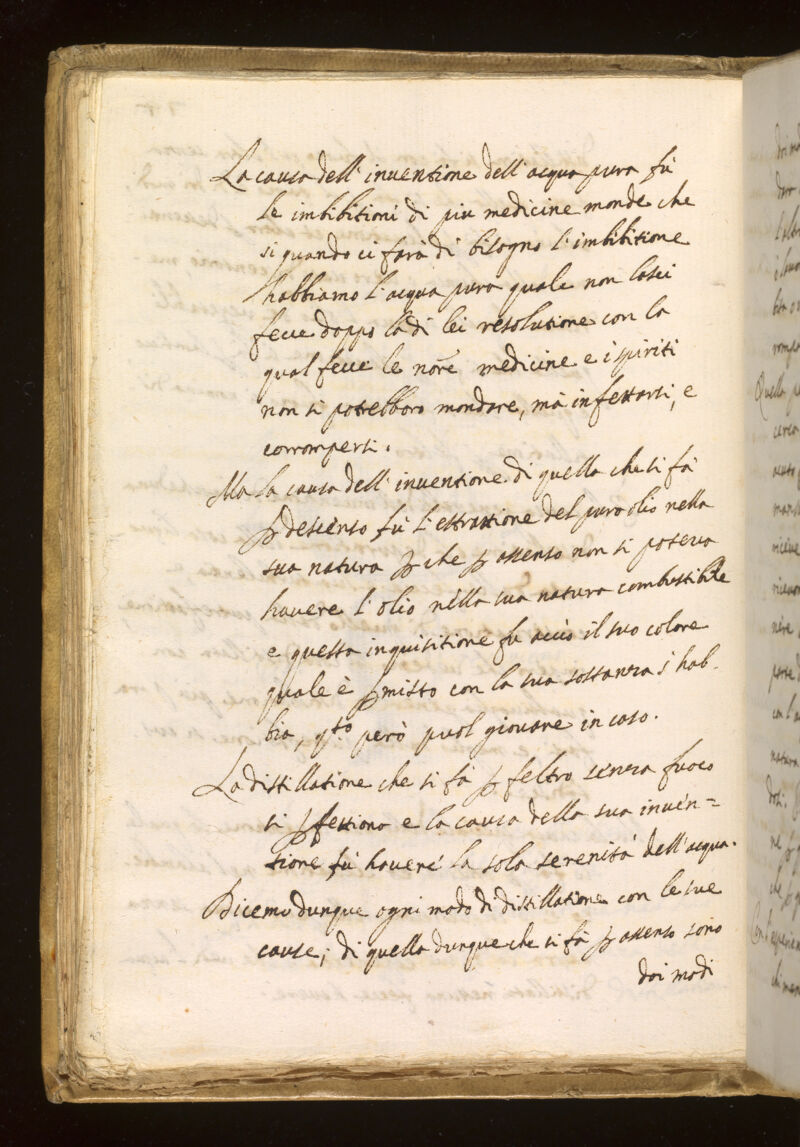 La causa dell' inventione dell' acqua pura fù
le imbibitioni di piu medicine monde che
si quando ci farà di bisogno l' imbibitione
habbiamo l' acqua pura quale non lasci
fecce doppo la di lei resolutione con la
qual fecce le nōre medicine e i spiriti
non si potrebboro mondare, mà infettarsi, e
corrompersi.
Ma la causa dell' inventione di quella che si fà
ꝑ descenso fù l' estrattione del puro olio nella
sua natura ꝑche ꝑ assenso non si poteva
havere l' olio nella sua natura combustibile
e questa inquisitione fu acciò il suo colore
quale è ꝑmisto con la sua sostanza s' hab-
bia, qto però puol giovare in caso.
La distillatione che si fà ꝑ feltro senza fuoco
si ꝑfettiona e la causa della sua inven=
tione fù havere la sola serenità dell' acqua.
Dicemo dunque ogni modo di distillatione con le sue
cause; di quella dunque che si fà ꝑ assenso sono
doi modi